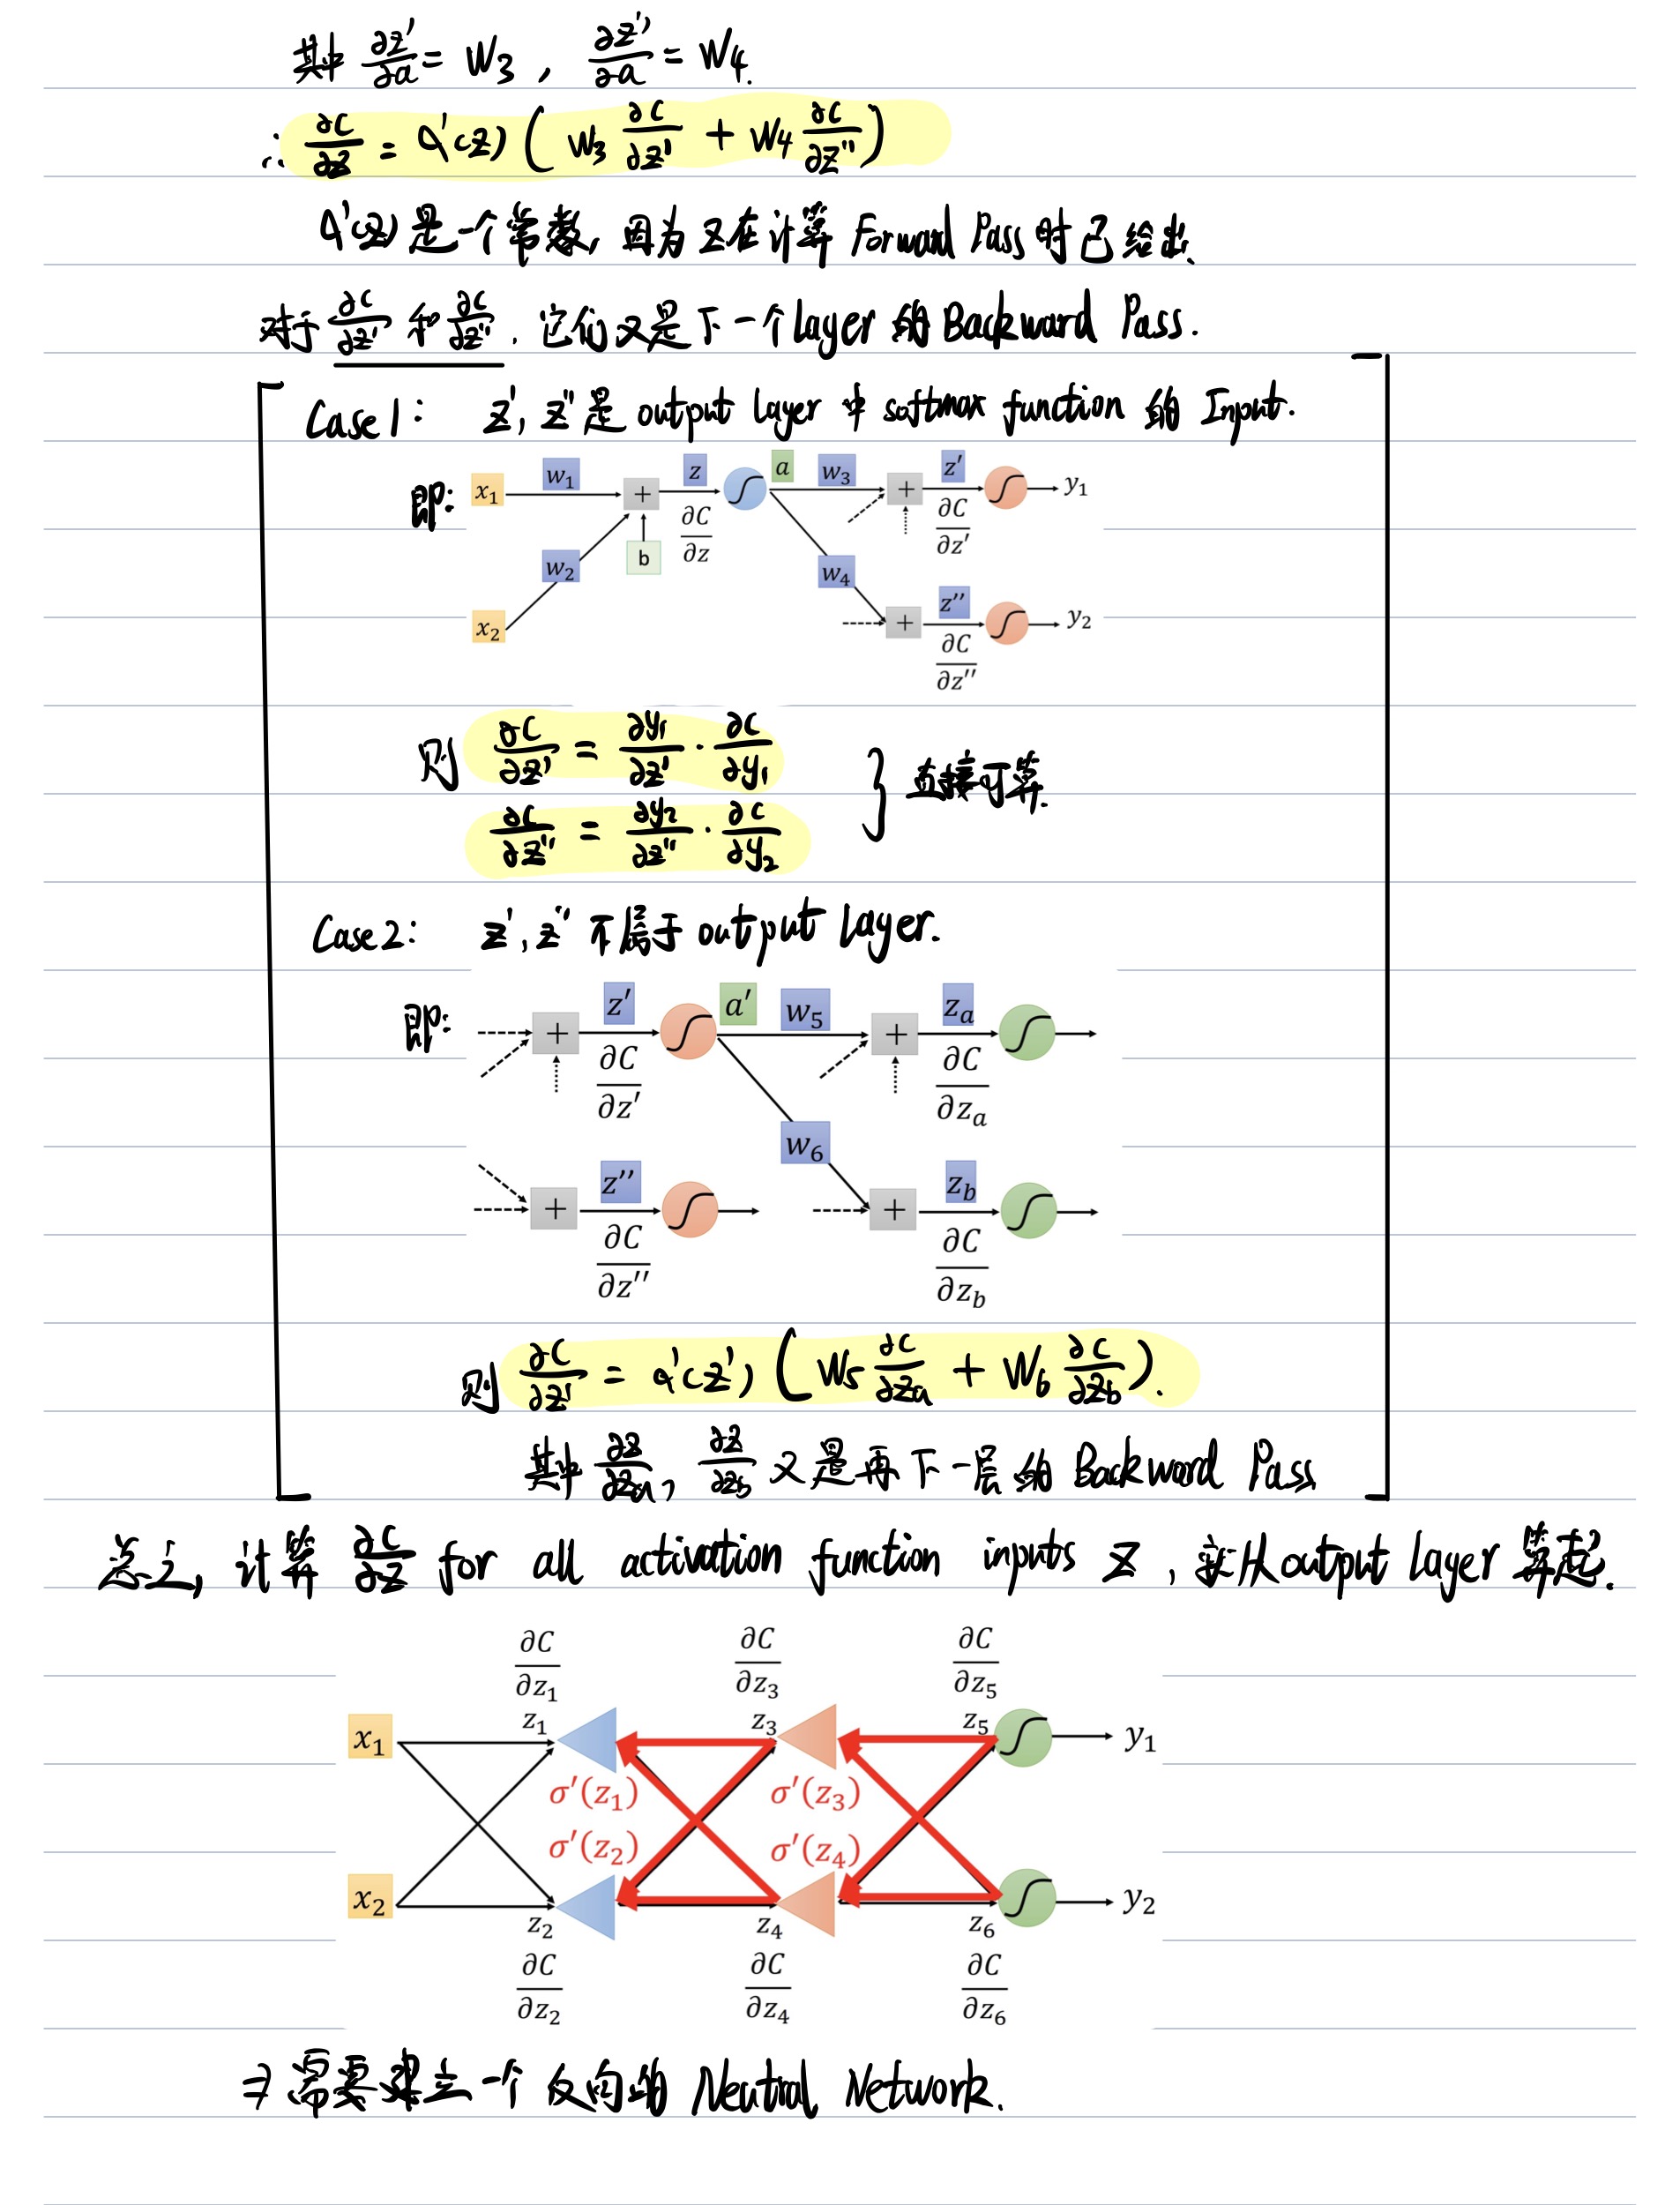 其中 ∂z'/∂a = W3 , ∂z'/∂a = W4.
∴ ∂C/∂z = α'(z) ( W3 ∂C/∂z' + W4 ∂C/∂z'' )
α'(z) 是一个常数, 因为 z 在计算 Forward Pass 时已给出.
对于 ∂C/∂z' 和 ∂C/∂z'', 它们又是下一个 layer 的 Backward Pass.
Case 1: z', z'' 是 output layer 中 softmax function 的 Input.
即:
x1 w1 + z a w3 + z' y1
∂C/∂z ∂C/∂z'
w2 b w4
x2 + z'' y2
∂C/∂z''
则 ∂C/∂z' = ∂y1/∂z' · ∂C/∂y1
∂C/∂z'' = ∂y2/∂z'' · ∂C/∂y2
} 直接可算.
Case 2: z', z'' 不属于 output layer.
即:
+ z' a' w5 + za
∂C/∂z' ∂C/∂za
w6
+ z'' + zb
∂C/∂z'' ∂C/∂zb
则 ∂C/∂z' = α'(z') ( W5 ∂C/∂za + W6 ∂C/∂zb ).
其中 ∂z/∂za, ∂z/∂zb 又是再下一层的 Backward Pass
总之, 计算 ∂C/∂z for all activation function inputs z , 要从 output layer 算起.
∂C/∂z1 ∂C/∂z3 ∂C/∂z5
x1 z1 z3 z5 y1
σ'(z1) σ'(z3)
σ'(z2) σ'(z4)
x2 z2 z4 z6 y2
∂C/∂z2 ∂C/∂z4 ∂C/∂z6
⇒ 需要建立一个反向的 Neutral Network.